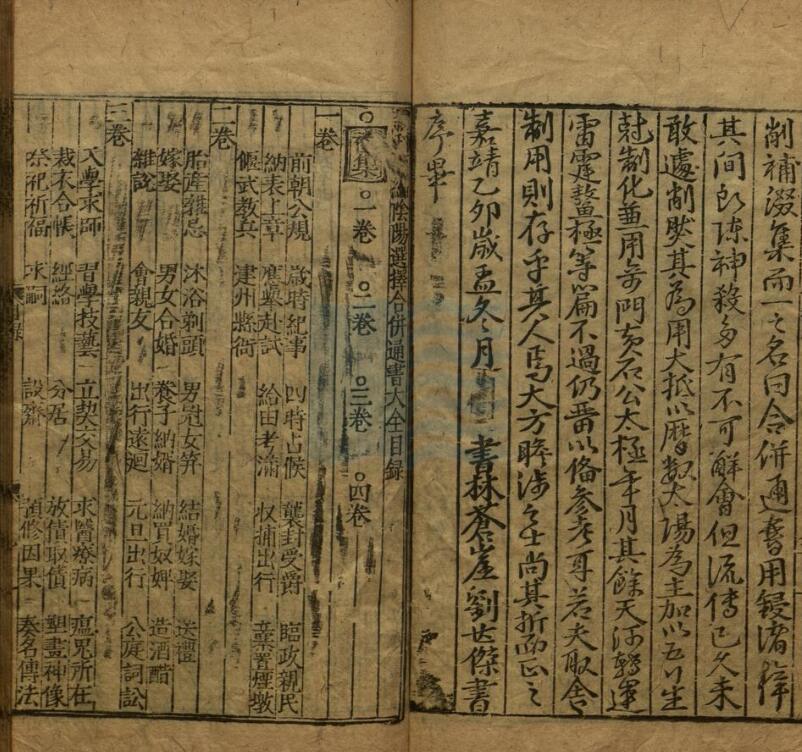 削補濴集而一之名曰合併通書用鋟諸梓
其間郎陈神殺多有不可觧會但流傳已久未
敢遽削然其為用大抵以曆数太陽為主加以五行生
尅制化並用竒門黄石公太極年月其餘天河轉運
雷霆鰲極等篇不過仍畨以俻参考耳若夫取舍
制用則存乎其人焉大方瞻渉之士尚其折而正之
嘉靖乙卯歲孟冬月 書林蒼崖劉世傑書
序畢
陰陽選擇合併通書大全目録
集 一卷 二卷 三卷 四卷
一卷
前朝公規 歲時紀事 四時占候 襲封受爵 臨政親民
納表上章 應舉赴試 給由考滿 収捕出行 立寨置煙墩
偃武教兵 建州縣衙
二卷
胎産雜忌 沐浴剃頭 男冠女笄 結婚嫁娶 送禮
嫁娶 男女合婚 養子納婿 納買奴婢 造酒醋
雜説 會親友 出行遠廻 元旦出行 公庭詞訟
三卷
入學求師 習學技藝 立契交易 求醫療病 瘟鬼所在
裁衣合帳 經絡 分居 放債取債 塑畫神像
祭祀祈福 求嗣 設齋 預修因果 奏名傳法